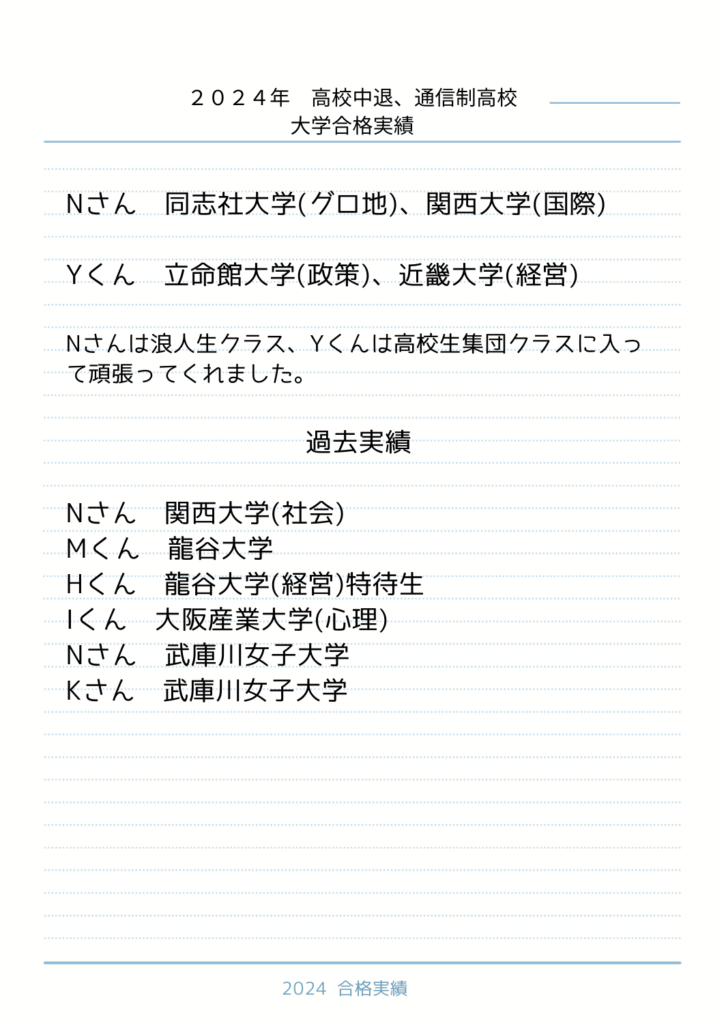 ２０２４年　高校中退、通信制高校
大学合格実績
Nさん　同志社大学(グロ地)、関西大学(国際)
Yくん　立命館大学(政策)、近畿大学(経営)
Nさんは浪人生クラス、Yくんは高校生集団クラスに入っ
て頑張ってくれました。
過去実績
Nさん　関西大学(社会)
Mくん　龍谷大学
Hくん　龍谷大学(経営)特待生
Iくん　大阪産業大学(心理)
Nさん　武庫川女子大学
Kさん　武庫川女子大学
2024 合格実績